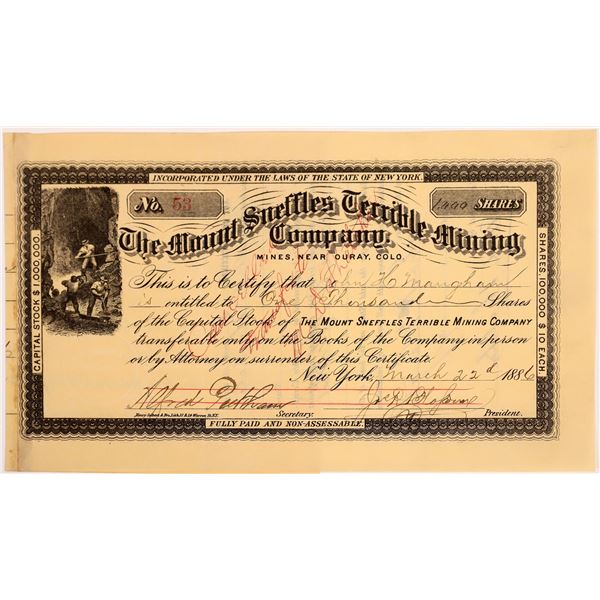 INCORPORATED UNDER THE LAWS OF THE STATE OF NEW YORK.
No. 53
1,000 SHARES
The Mount Sneffles Terrible Mining
Company.
MINES, NEAR OURAY, COLO.
CAPITAL STOCK $1,000,000.
SHARES, 100,000 $10 EACH.
This is to Certify that John H Maugham
is entitled to One Thousand Shares
of the Capital Stock of THE MOUNT SNEFFLES TERRIBLE MINING COMPANY
transferable only on the Books of the Company in person
or by Attorney on surrender of this Certificate.
New York, March 22d 1886
Alfred
Secretary.
President.
FULLY PAID AND NON-ASSESSABLE.